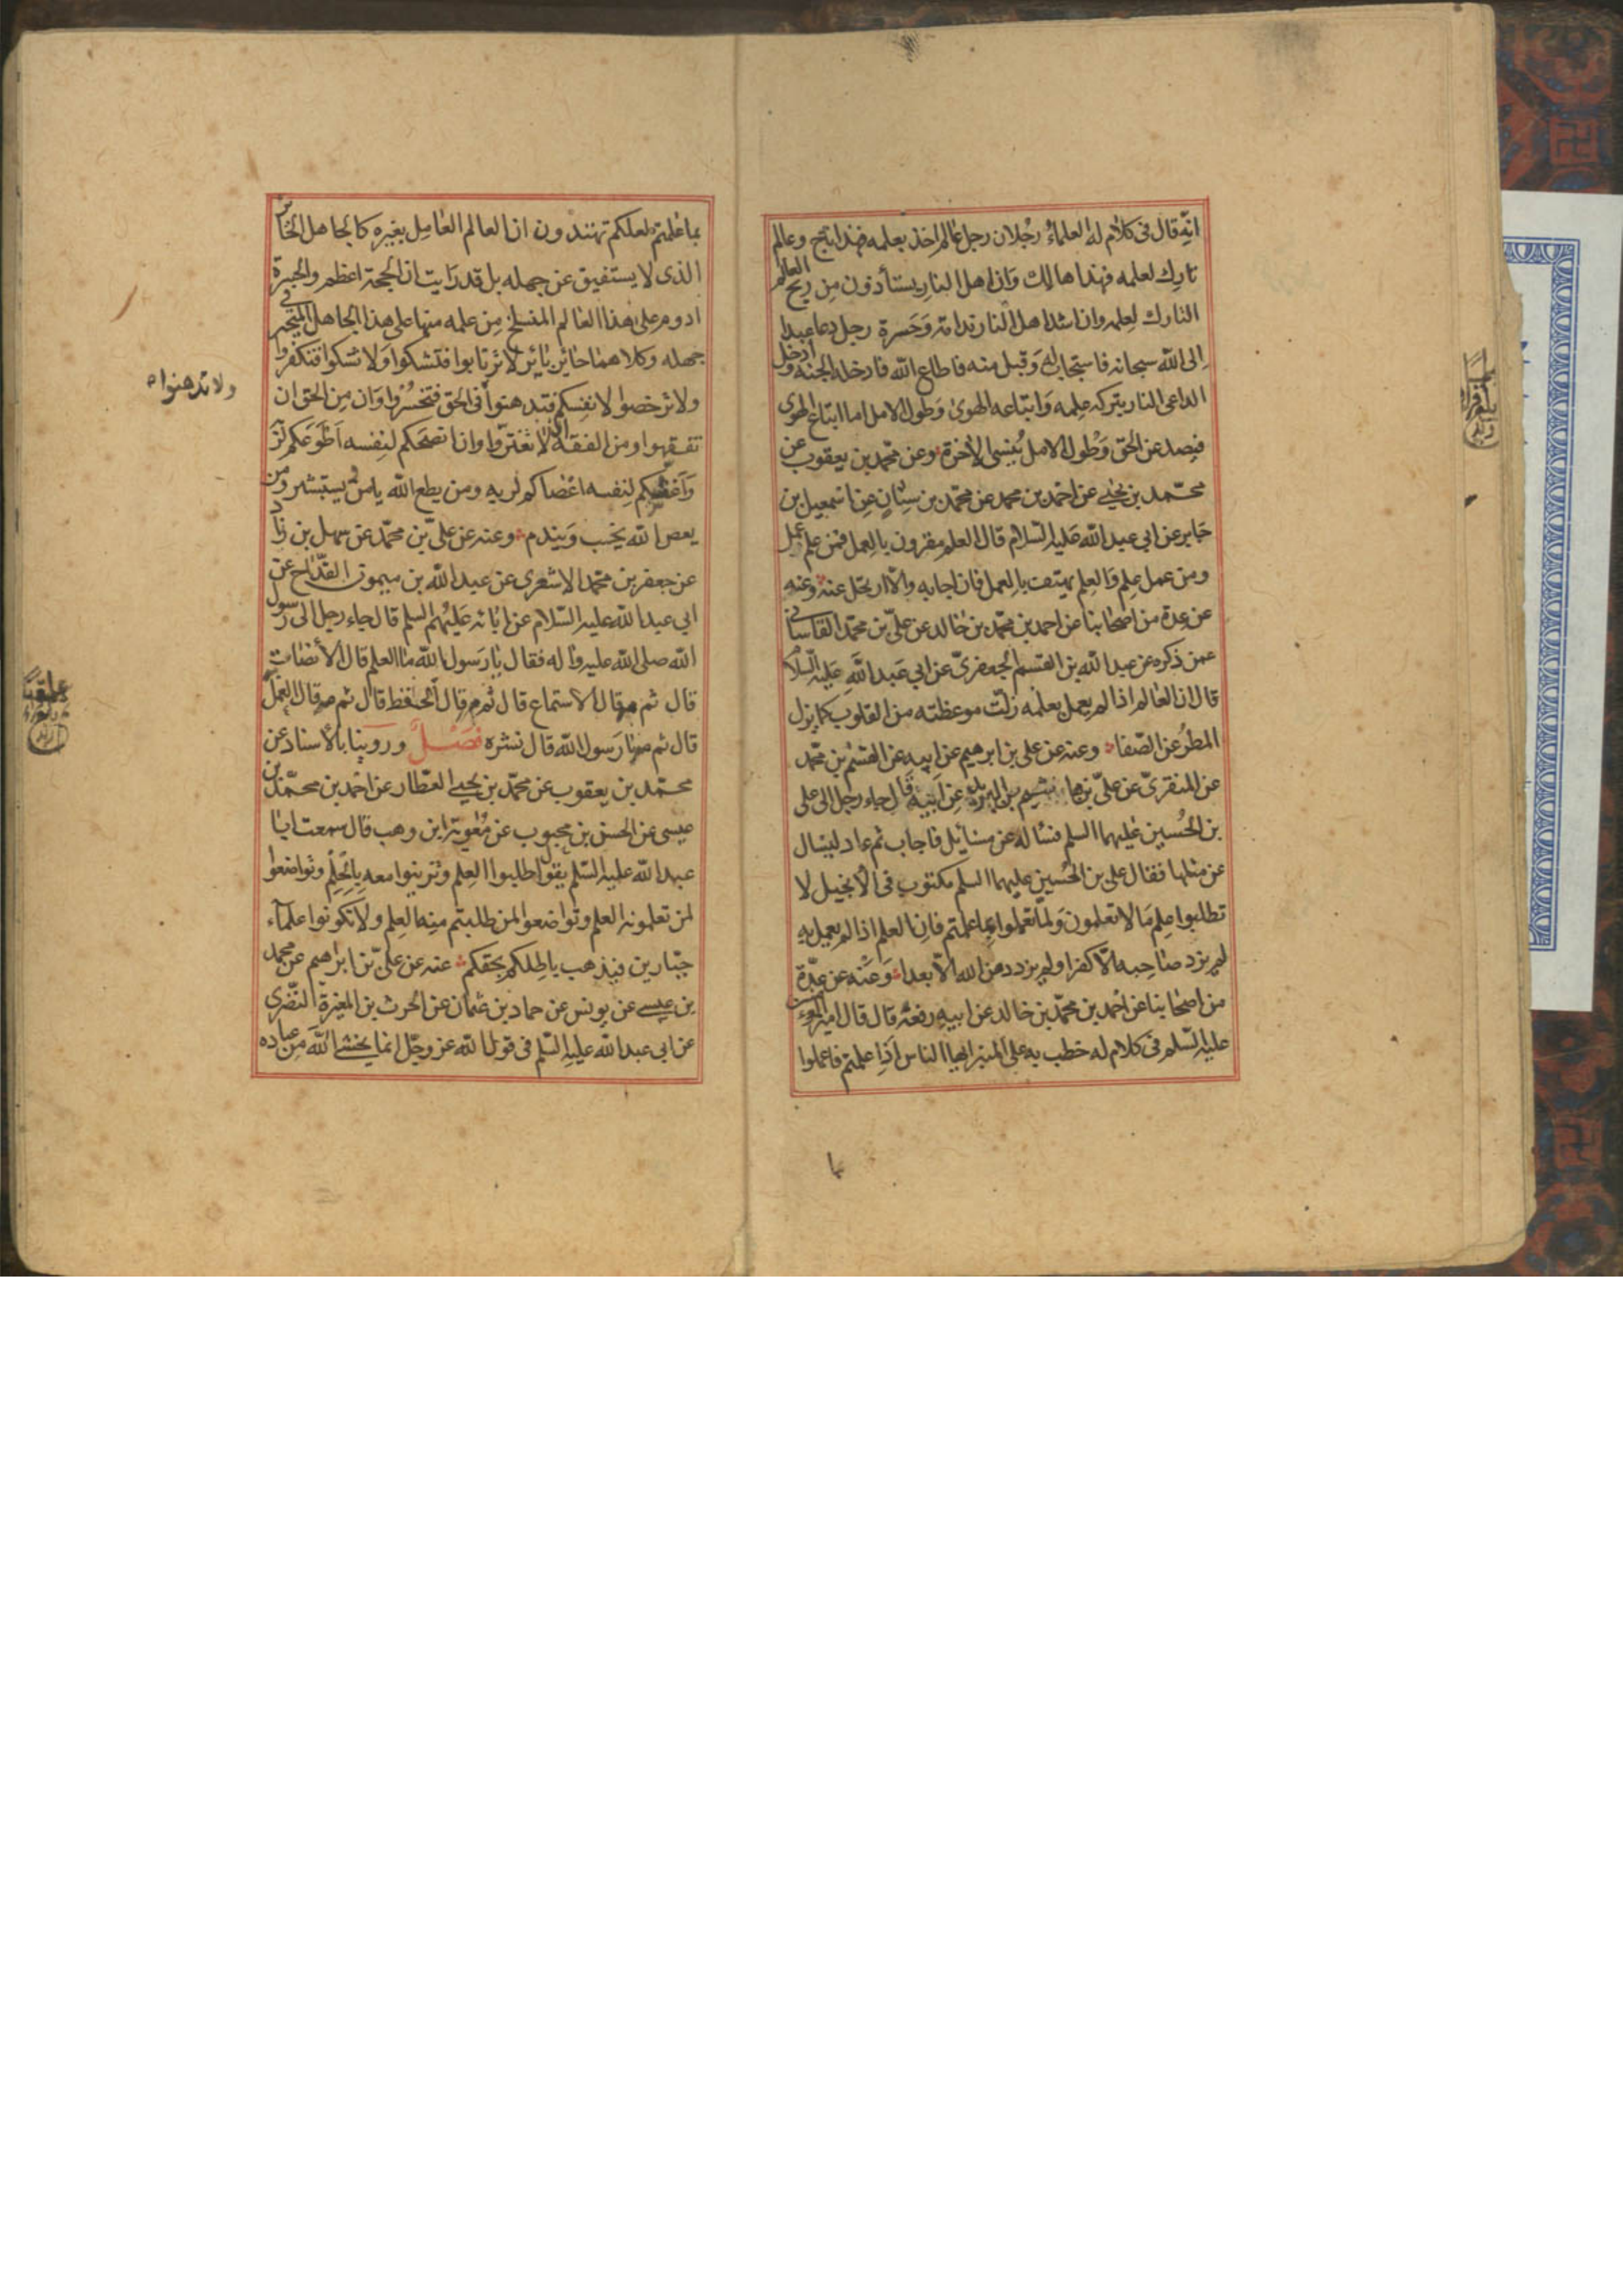 انّه قال فى كلام له العلماء رجلان رجل عالم اخذ بعلمه فهذا ناج وعالم
تارك لعلمه فهذا هالك وان اهل النار يستأذون من ريح العالم
التارك لعلمه وان اشد اهل النار ندامة وحسرة رجل دعا عبدا
الى الله سبحانه فاستجاب له وقبل منه فاطاع الله فادخله الجنة وادخل
الداعى النار بتركه علمه واتباعه الهوى وطول الامل اما اتباع الهوى
فيصد عن الحق وطول الامل ينسى الاخرة وعن محمد بن يعقوب عن
محمد بن يحيى عن احمد بن محمد عن محمد بن سنان عن اسمعيل بن
جابر عن ابى عبد الله عليه السلام قال العلم مقرون بالعمل فمن علم عمل
ومن عمل علم والعلم يهتف بالعمل فان اجابه والّا ارتحل عنه وعنه
عن عدة من اصحابنا عن احمد بن محمد بن خالد عن علىّ بن محمد القاسانى
عمن ذكره عن عبد الله بن القسم الجعفرىّ عن ابى عبد الله عليه السلام
قال ان العالم اذا لم يعمل بعلمه زلّت موعظته من القلوب كما يزل
المطر عن الصفا وعنه عن على بن ابرهيم عن ابيه عن القسم بن محمد
عن المنقرىّ عن علىّ بن هاشم بن البريد عن ابيه قال جاء رجل الى على
بن الحسين عليهما السلم فساله عن مسائل فاجاب ثم عاد ليسال
عن مثلها فقال على بن الحسين عليهما السلم مكتوب فى الانجيل لا
تطلبوا علم ما لا تعلمون ولما تعملوا بما علمتم فان العلم اذا لم يعمل به
لم يزد صاحبه الّا كفرا ولم يزدد من الله الّا بعدا وعنه عن عدّة
من اصحابنا عن احمد بن محمد بن خالد عن ابيه رفعه قال قال امير المؤمنين
عليه السّلم فى كلام له خطب به على المنبر ايها الناس اذا علمتم فاعملوا
بما علمتم لعلكم تهتدون ان العالم العامل بغيره كالجاهل الحائر
الذى لا يستفيق عن جهله بل قد رايت ان الحجة اعظم والحسرة
ادوم على هذا العالم المنسلخ من علمه منها على هذا الجاهل المتحير فى
جهله وكلاهما حائر بائر لا ترتابوا فتشكوا ولا تشكوا فتكفروا
ولا ترخصوا لانفسكم فتدهنوا فى الحق فتخسروا وان من الحق ان
تفقهوا ومن الفقه ان لا تغترّوا وان انصحكم لنفسه اطوعكم لربه
واغشكم لنفسه اعصاكم لربه ومن يطع الله يامن ويستبشر ومن
يعص الله يخب ويندم وعنه عن علىّ بن محمّد عن سهل بن زياد
عن جعفر بن محمّد الاشعرى عن عبد الله بن ميمون القدّاح عن
ابى عبد الله عليه السّلام عن ابائه عليهم السلم قال جاء رجل الى رسول
الله صلى الله عليه واله فقال يا رسول الله ما العلم قال الانصات
قال ثم مه قال الاستماع قال ثم مه قال الحفظ قال ثم مه قال العمل
قال ثم مه يا رسول الله قال نشره فصل وروينا بالاسناد عن
محمّد بن يعقوب عن محمّد بن يحيى العطّار عن احمد بن محمّد بن
عيسى عن الحسن بن محبوب عن معوية ابن وهب قال سمعت ابا
عبد الله عليه السّلم يقول اطلبوا العلم وتزينوا معه بالحلم وتواضعوا
لمن تعلمونه العلم وتواضعوا لمن طلبتم منه العلم ولا تكونوا علماء
جبّارين فيذهب باطلكم بحقكم عنه عن علىّ بن ابراهيم عن محمد
بن عيسى عن يونس عن حماد بن عثمان عن الحرث بن المغيرة النّضرى
عن ابى عبد الله عليه السّلم فى قول الله عز وجّل انما يخشى الله من عباده
ولا تدهنوا